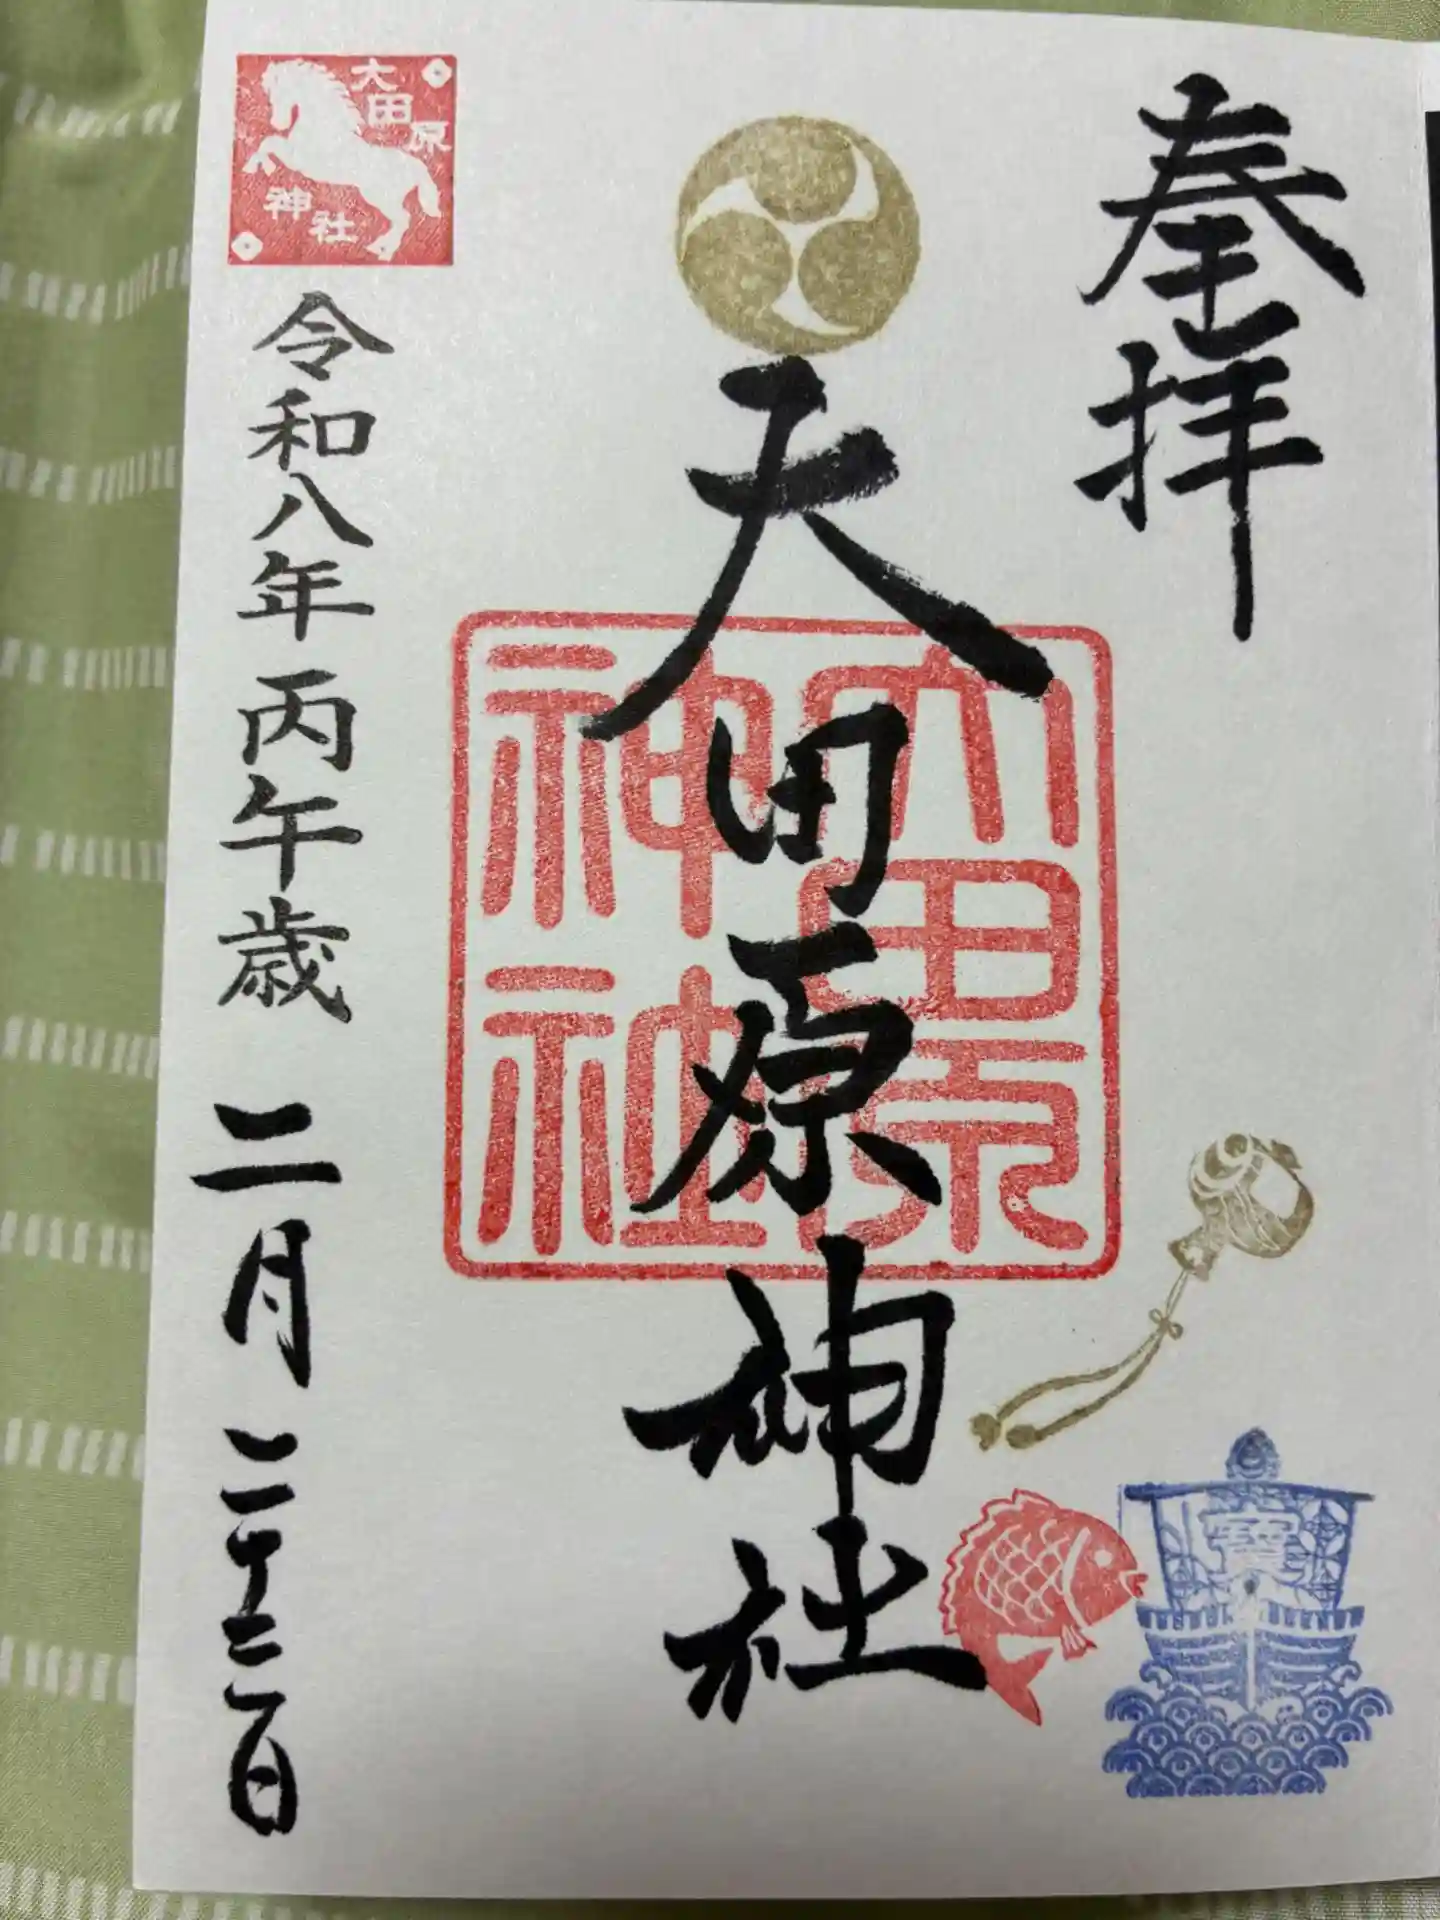 奉拝
大田原神社
大田原
神社
令和八年 丙午歳 二月 二十三日
大田原
神社
寶